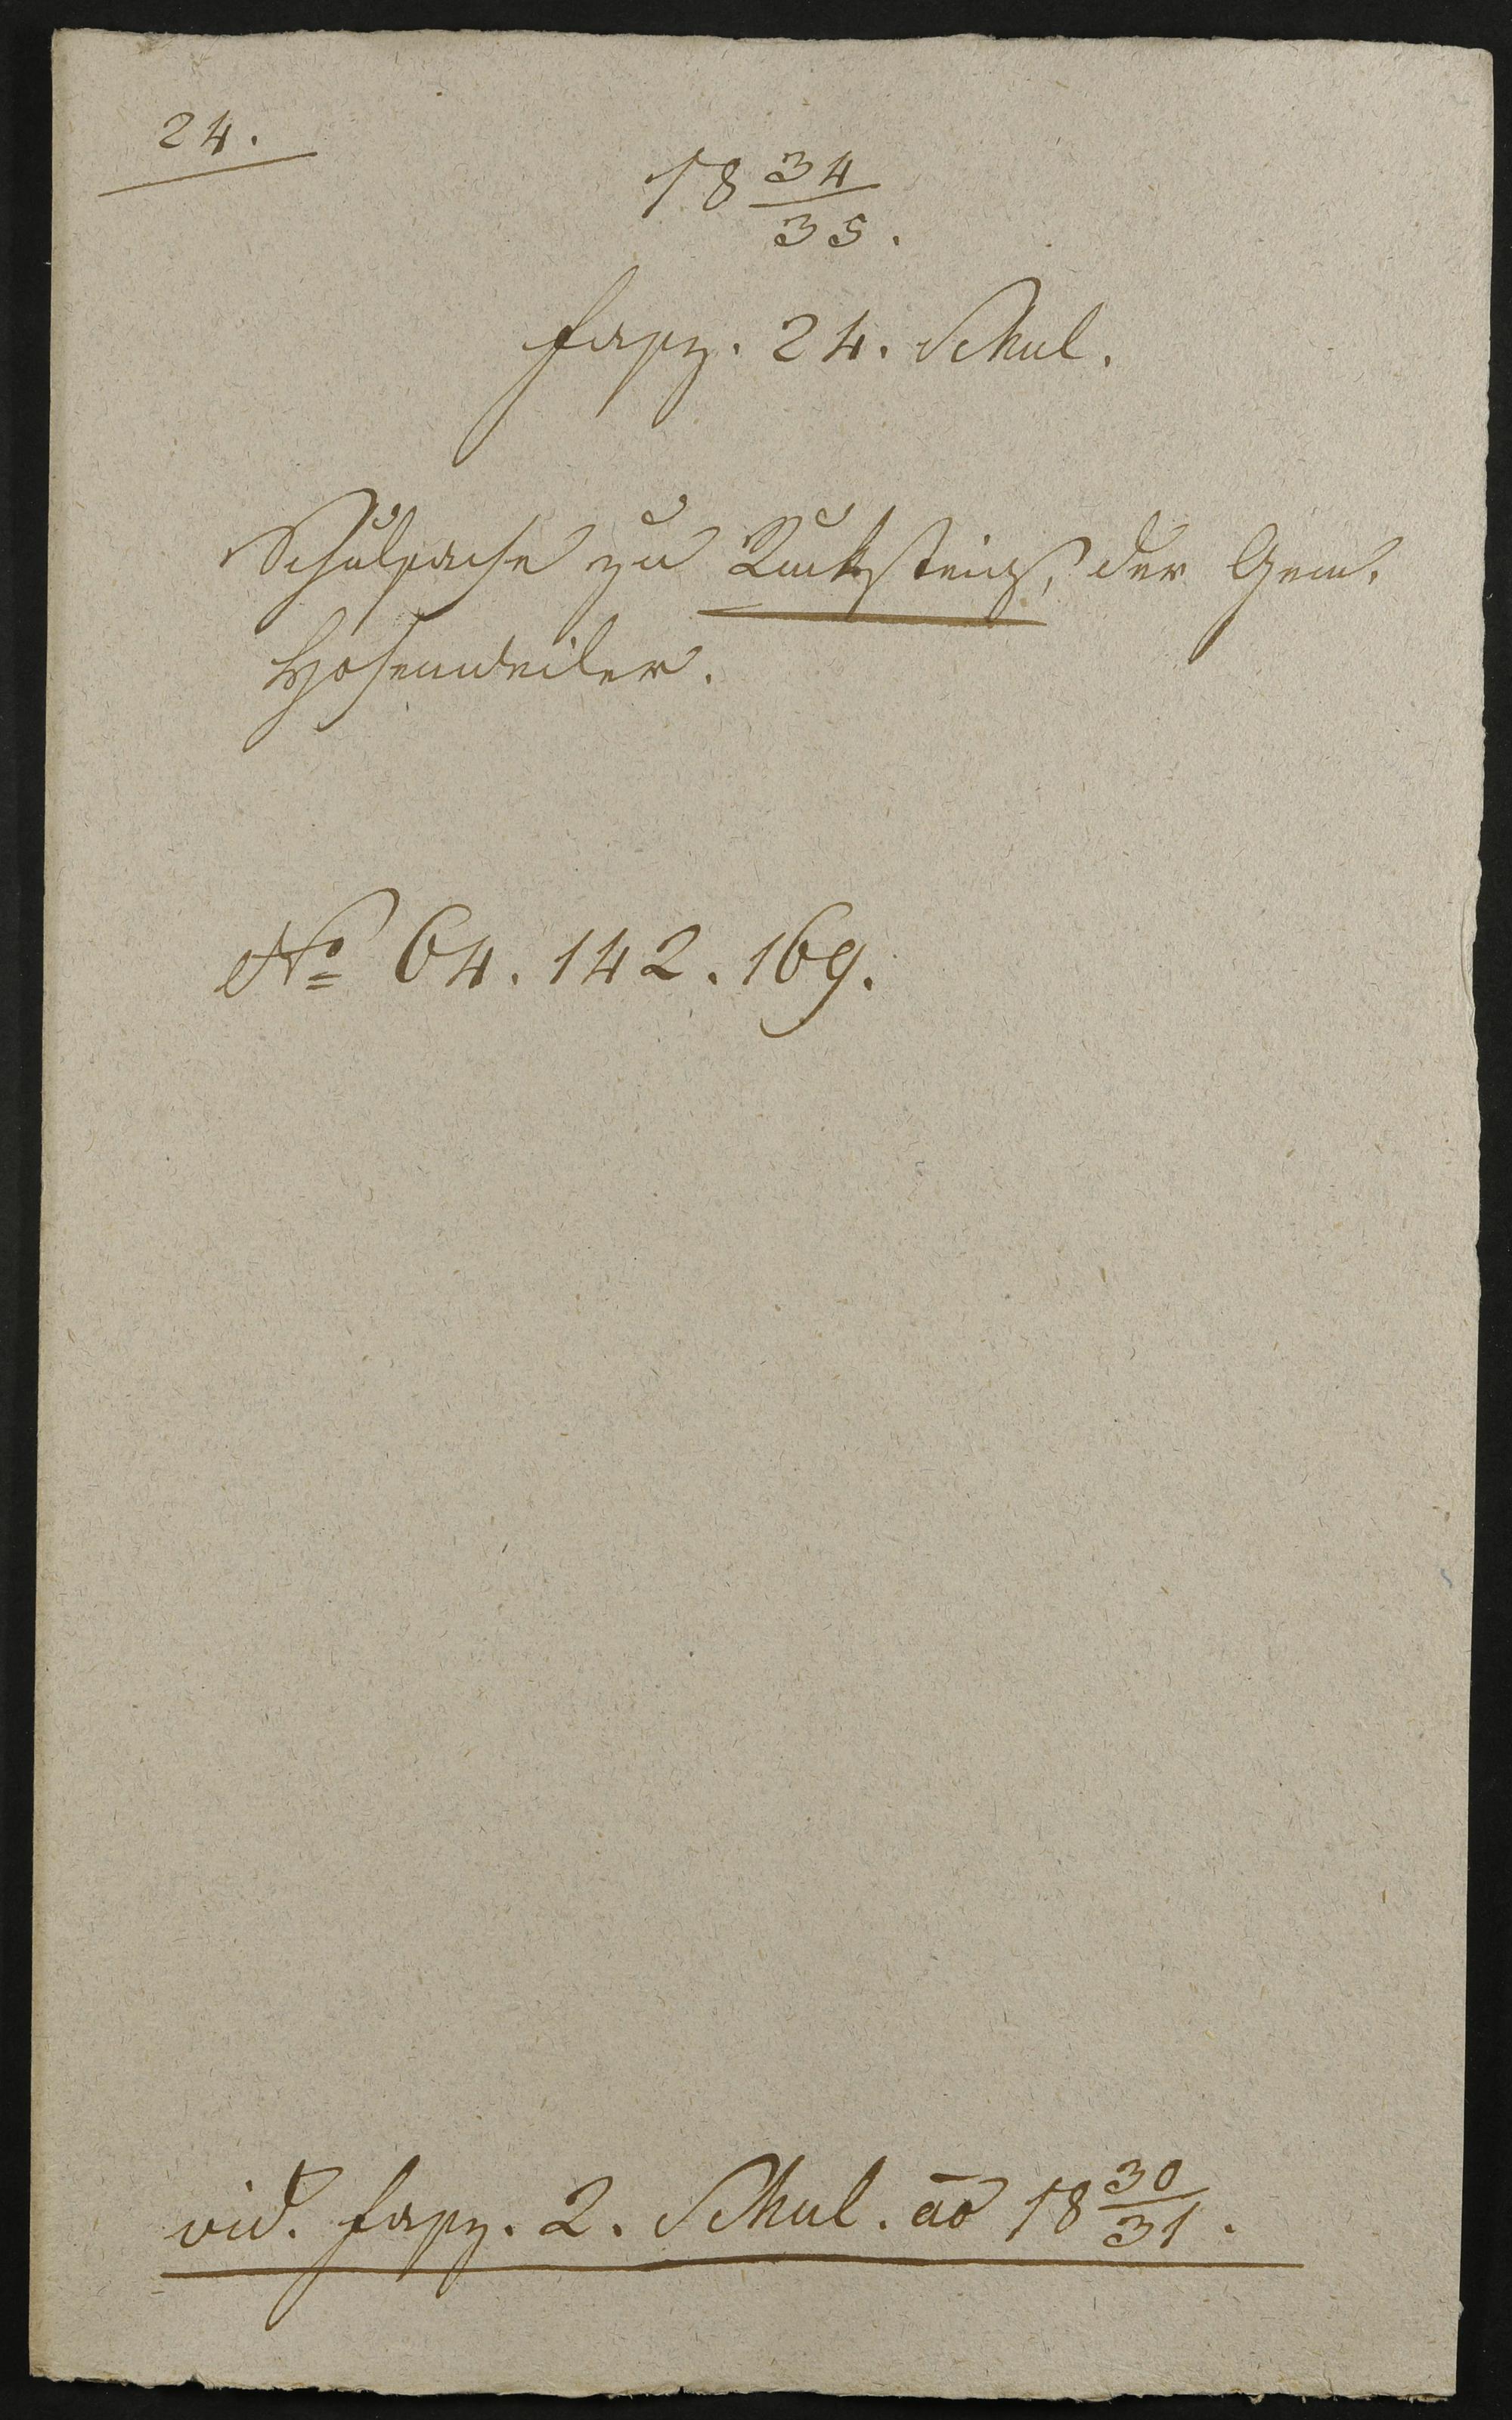 24.
18 34/35.
fasz. 24. Schul.
Schulsache zu Ruksteig, der Gem.
Hosenweiler.
No 64. 142. 169.
vid. fasz. 2. Schul. ao 18 30/31.